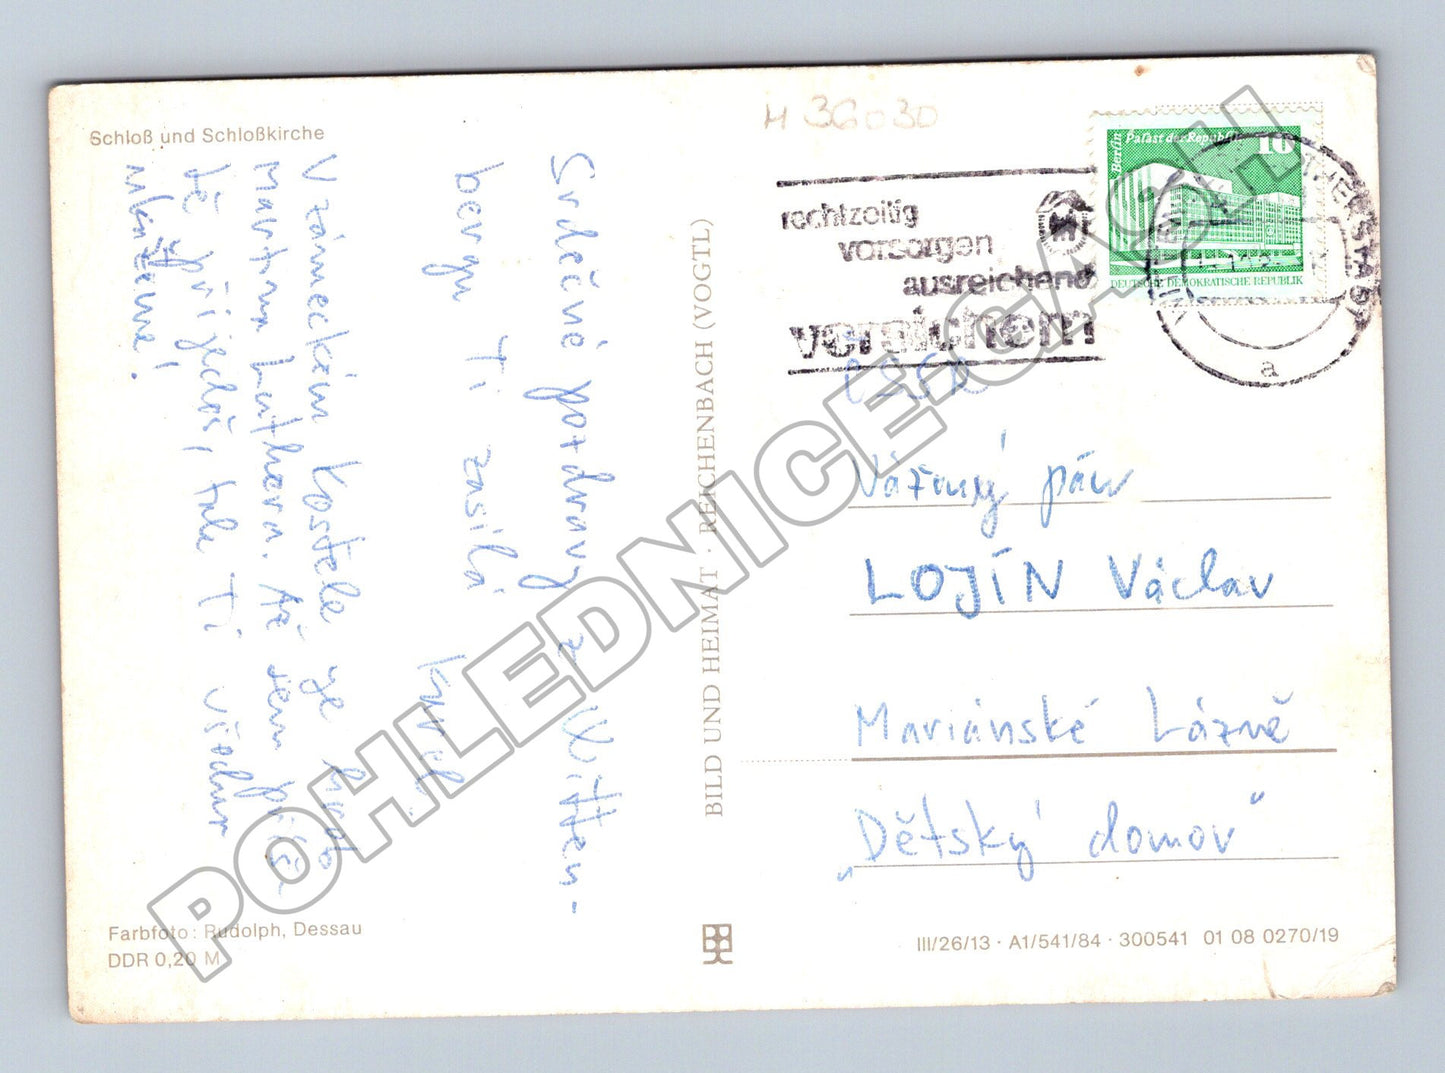 Schloß und Schloßkirche
Srdečné pozdravy z Witten-
bergu Ti zasílá Karel.
V zámeckém kostele je hrob
Martina Luthera. Až sem příš-
tě přijedeš, tak Ti všechno
ukážeme!
Farbfoto: Rudolph, Dessau
DDR 0,20 M
BILD UND HEIMAT · REICHENBACH (VOGTL)
H 36030
rechtzeitig
vorsorgen
ausreichend
versichern
Berlin Palast der Republik
10
DEUTSCHE DEMOKRATISCHE REPUBLIK
LUTHERSTADT
a
Vážený pán
LOJÍN Václav
Mariánské Lázně
„Dětský domov"
III/26/13 · A1/541/84 · 300541 01 08 0270/19
POHLEDNICE.CASH